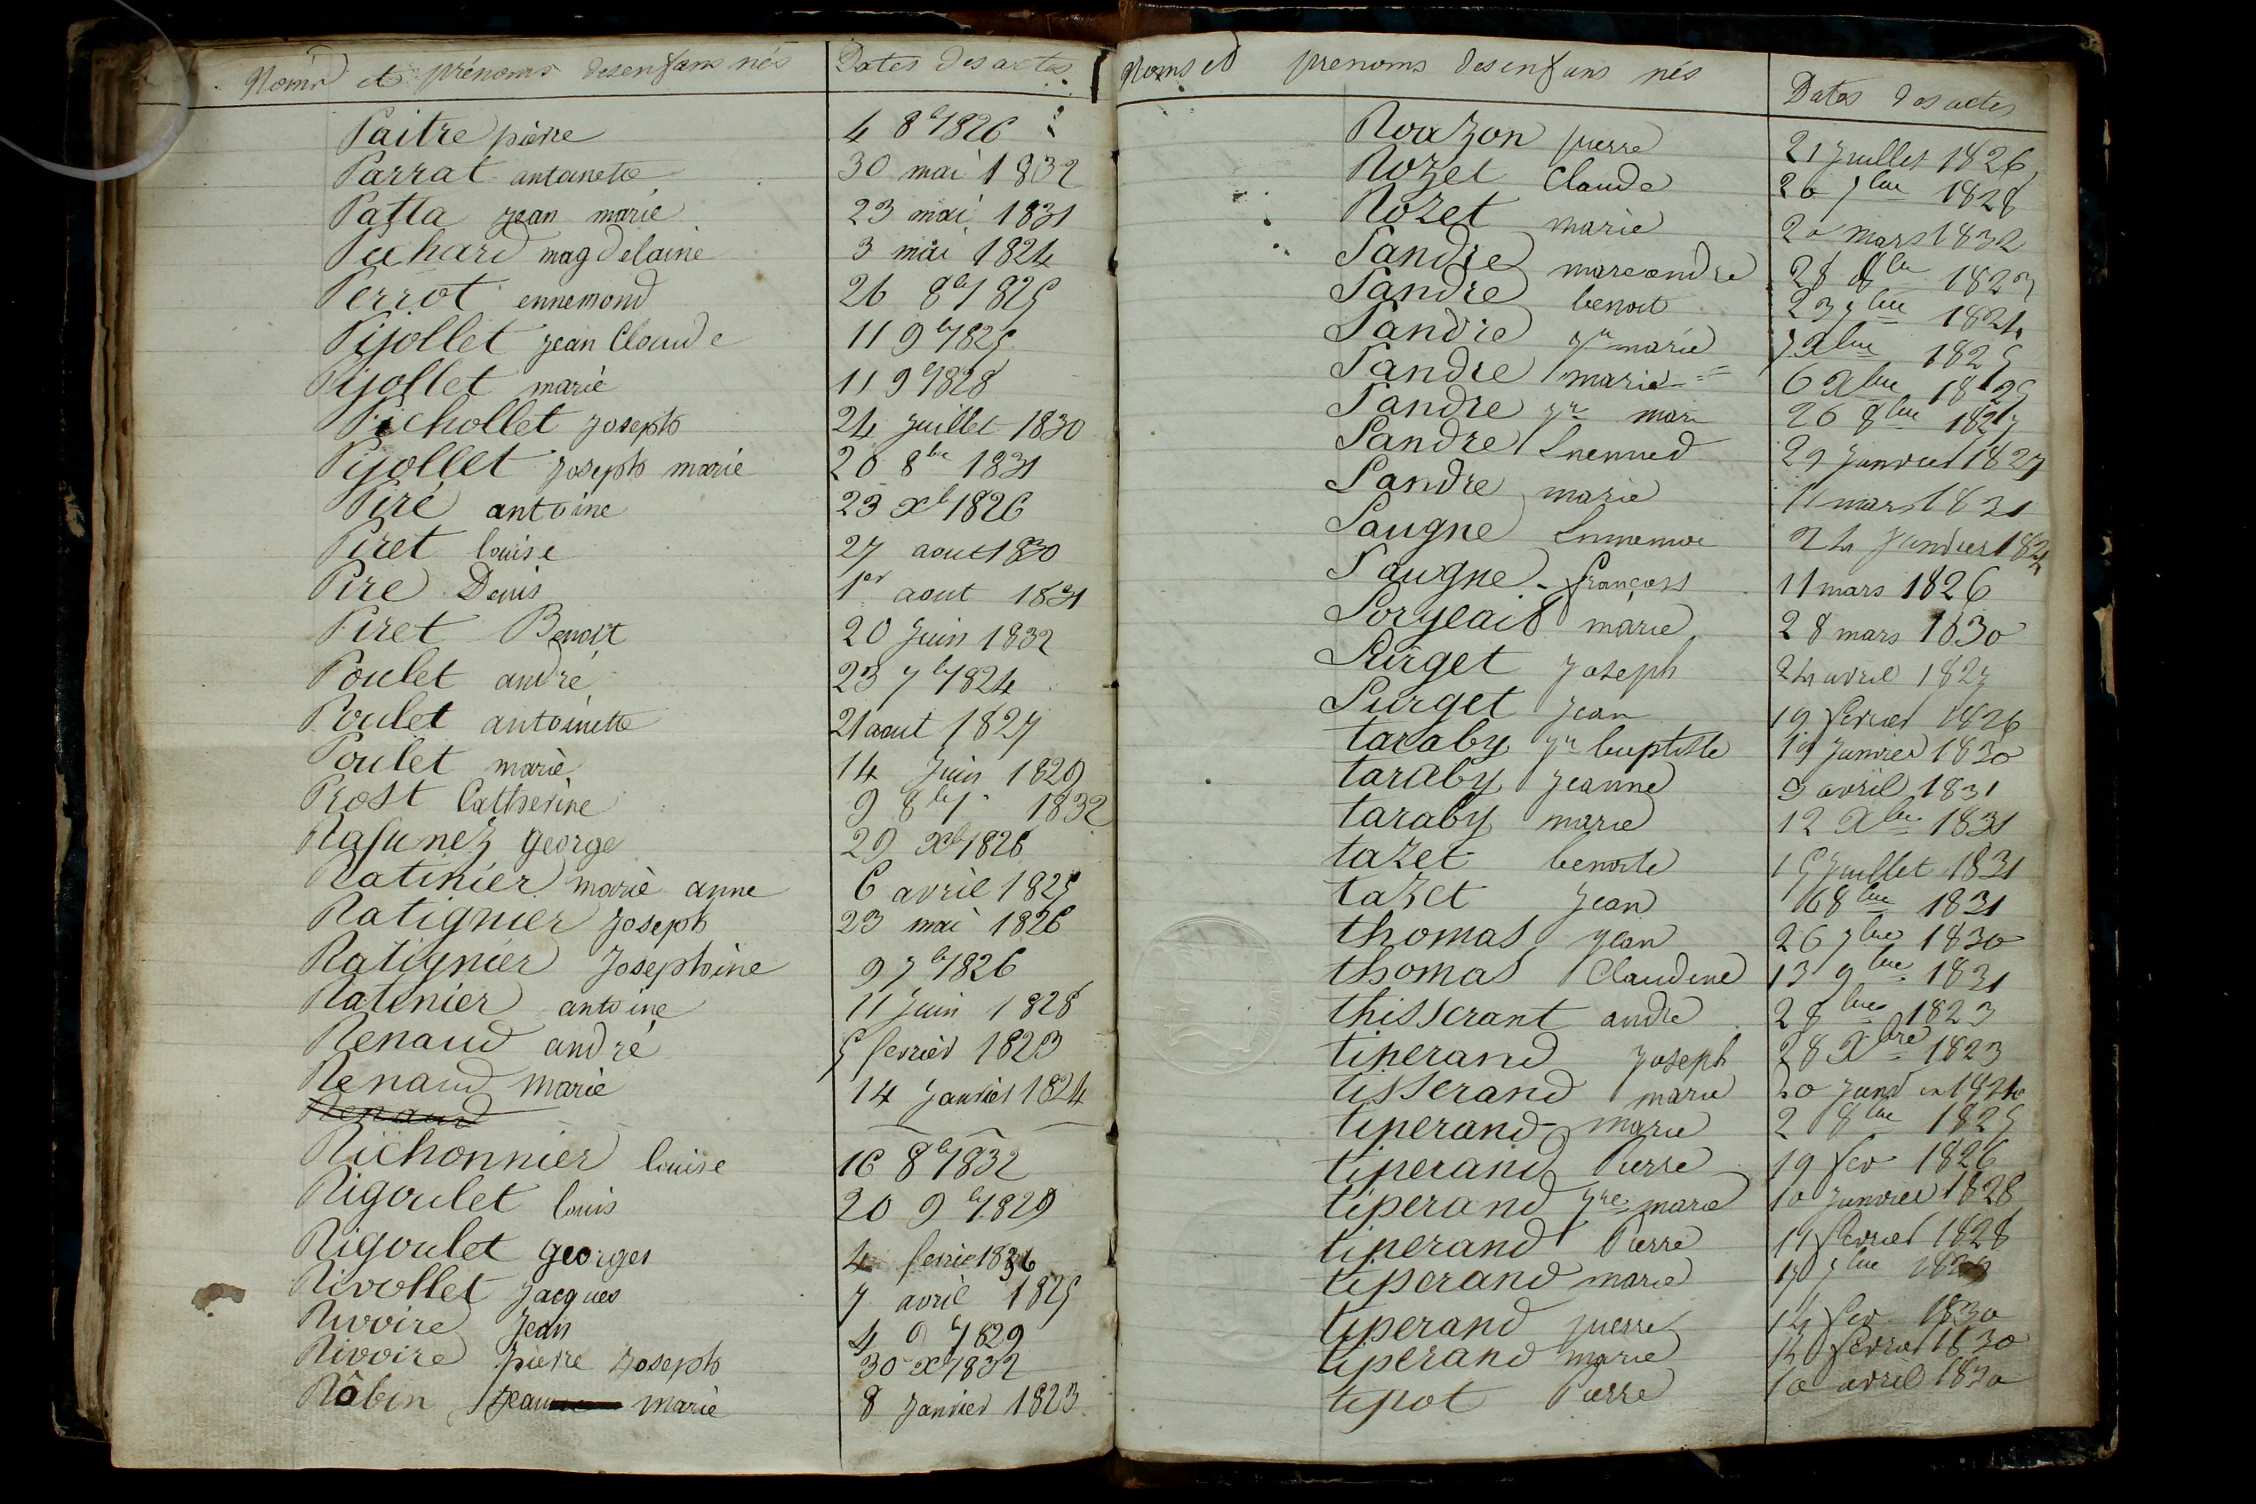 Noms et prénoms des enfans nés Dates des actes
Paitre pierre 4 8b 1826
Parrat antoinette 30 mai 1832
Patta jean marie 23 mai 1831
Pechard magdelaine 3 mai 1824
Perrot ennemond 26 8b 1825
Pijollet jean Claude 11 9b 1825
Pijollet marie 11 9b 1828
Pichollet Joseph 24 Juillet 1830
Pijollet Joseph marie 20 8bre 1831
Piré antoine 23 xb 1826
Piret louise 27 aout 1830
Pire Denis 1er aout 1831
Piret Benoit 20 Juin 1832
Poulet andré 23 7b 1824
Poulet antoinette 21 aout 1827
Poulet marie 14 Juin 1829
Prost Catherine 9 8b 1832
George 29 xb 1826
Ratinier marie anne 6 avril 1825
Ratignier Joseph 23 mai 1826
Ratignier Josephine 9 7b 1826
Ratinier antoine 11 Juin 1828
Renaud andré 5 fevrier 1823
Renaud Marie 14 Janvier 1824
Renaud
Richonnier louise 16 8b 1832
Rigoulet louis 20 9b 1829
Rigoulet georges 4 fevrie
Rivollet Jacques 7 avril 1825
Rivoire Jean 4 1829
Rivoire pierre Joseph 30 xb 1832
Rôbin marie 8 Janvier 1823
Noms et prenoms des enfans nés Dates des actes
Roazon pierre 21 Juillet 1826
Rozet Claude 20 7bre 1828
Rozet marie 20 mars 1832
Sandre marc andre 28 8bre 1823
Sandre benoit 23 9bre 1824
Sandre jne marie 7 Xbre 1825
Sandre marie 6 Xbre 1825
Sandre 26 8bre 1827
Sandre 29 Janvier 1827
Sandre marie 11 mars 1831
Saugne 24 Janvier 1824
Saugne françois 11 mars 1826
marie 28 mars 1830
Surget Joseph 24 avril 1823
Surget Jean 19 fevrier 1826
taraby jn baptiste 19 Janvier 1830
taraby Jeanne 3 avril 1831
taraby marie 12 Xbre 1831
tazet benoite 15 Juillet 1831
tazet Jean 16 8bre 1831
thomas jean 26 7bre 1830
thomas Claudine 13 9bre 1831
thisserant andre 2 8bre 1823
tiperand Joseph 28 Xbre 1823
tisserand marie 20 1824
tiperand marie 2 8bre 1825
tiperand Pierre 19 fev 1826
tiperand jne marie 10 Janvier 1828
tiperand Pierre 11 fevrier 1828
tiperand marie 7bre
tiperand pierre 14 fev 1830
tiperand marie fevrier 1830
tipot Pierre 10 avril 1830